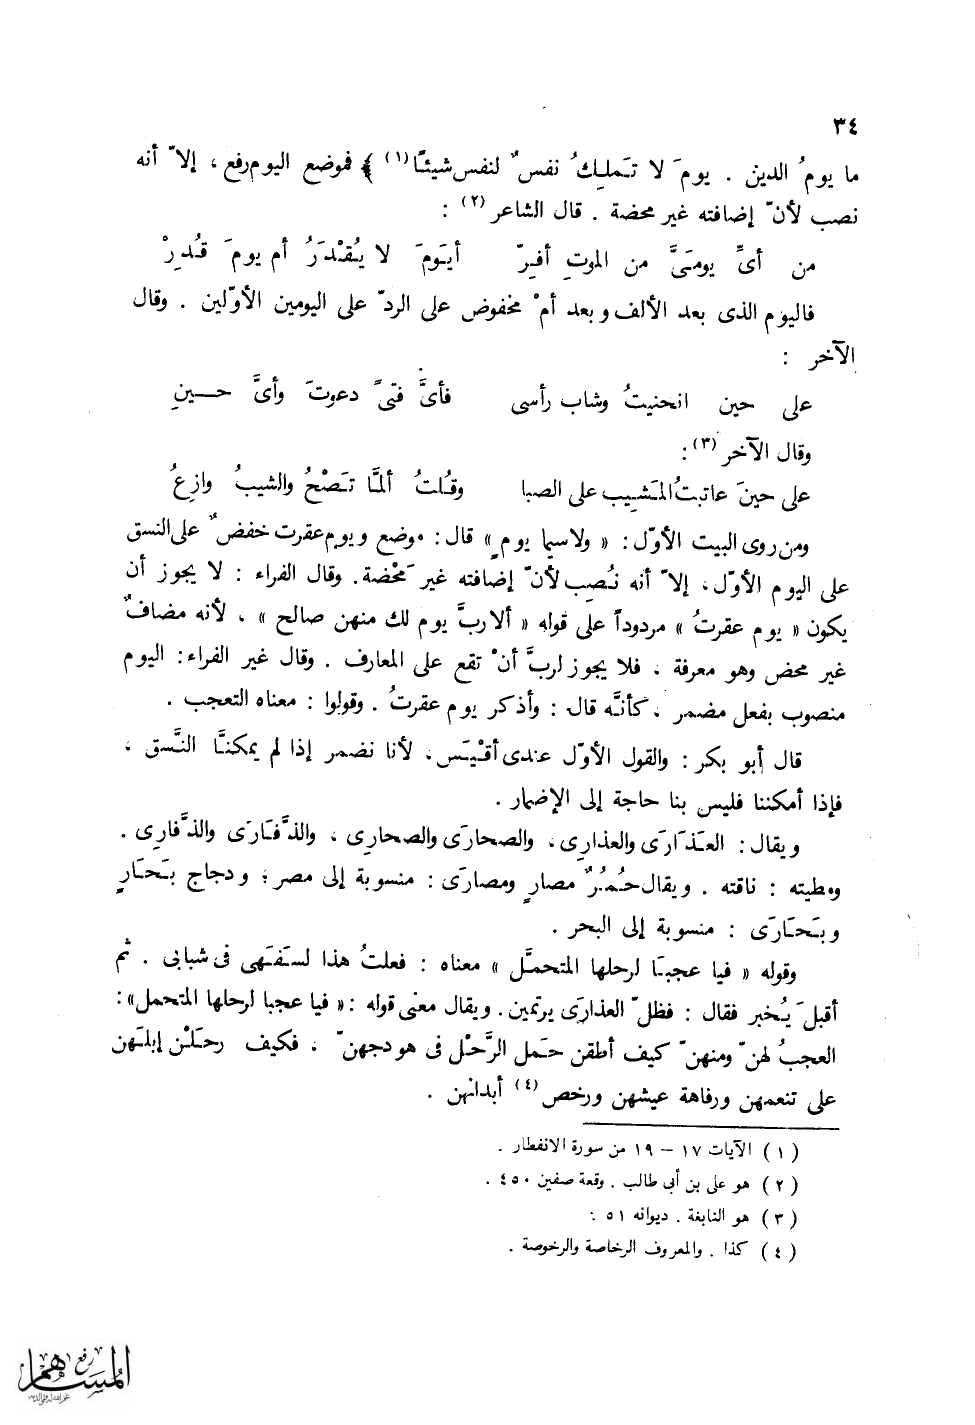 ٣٤
ما يومُ الدين . يومَ لا تَملِكُ نفسٌ لنفس شيئًا (١) ﴾ فموضع اليوم رفع ، إلاّ أنه
نصب لأنّ إضافته غير محضة . قال الشاعر (٢) :
من أىِّ يومَىَّ من الموتِ أفِرّ أيَومَ لا يُقْدَرُ أم يومَ قُدِرْ
فاليوم الذى بعد الألف وبعد أمْ مخفوض على الردّ على اليومين الأوّلين . وقال
الآخر :
على حين انحنيتُ وشاب رأسى فأىَّ فتىً دعوتَ وأىَّ حــينِ
وقال الآخر (٣) :
على حينَ عاتبتُ المَشِيب على الصبا وقُلتُ ألمَّا تَصْحُ والشيبُ وازِعُ
ومن روى البيت الأوّل : « ولاسيما يومٍ » قال : موضع ويوم عقرت خفضٌ على النسق
على اليوم الأوّل ، إلاّ أنه نُصِب لأنّ إضافته غير مَحْضة . وقال الفراء : لا يجوز أن
يكون « يوم عقرتُ » مردوداً على قوله « ألا ربَّ يوم لك منهن صالح » ، لأنه مضافٌ
غير محض وهو معرفة ، فلا يجوز لربَّ أنْ تقع على المعارف . وقال غير الفراء : اليوم
منصوب بفعل مضمر ، كأنَّه قال : وأذكر يوم عقرتُ . وقولوا : معناه التعجب .
قال أبو بكر : والقول الأوّل عندى أقْيَس ، لأنا نضمر إذا لم يمكنَّا النَّسق ،
فإذا أمكننا فليس بنا حاجة إلى الإضمار .
ويقال : العَذَارَى والعذارِى ، والصحارَى والصحارِى ، والذَّفَارَى والذَّفارِى .
ومطيته : ناقته . ويقال حُمُرٌ مصارٍ ومصارَى : منسوبة إلى مصر ؛ ودجاج بَحَارٍ
وبَحَارَى : منسوبة إلى البحر .
وقوله « فيا عجبَا لرحلها المتحمَّل » معناه : فعلتُ هذا لسَفَهى فى شبابى . ثم
أقبلَ يُخبر فقال : فظلّ العذارَى يرتمين . ويقال معنى قوله : « فيا عجبا لرحلها المتحمل » :
العجبُ لهنّ ومنهنّ كيف أطقن حَمل الرَّحْل فى هودجهنّ ، فكيف رحَلْن إبلَهن
على تنعمهن ورفاهة عيشهن ورخص (٤) أبدانهن .
(١) الآيات ١٧ – ١٩ من سورة الانفطار .
(٢) هو على بن أبى طالب . وقعة صفين ٤٥٠ .
(٣) هو النابغة . ديوانه ٥١ .
(٤) كذا . والمعروف الرخاصة والرخوصة .